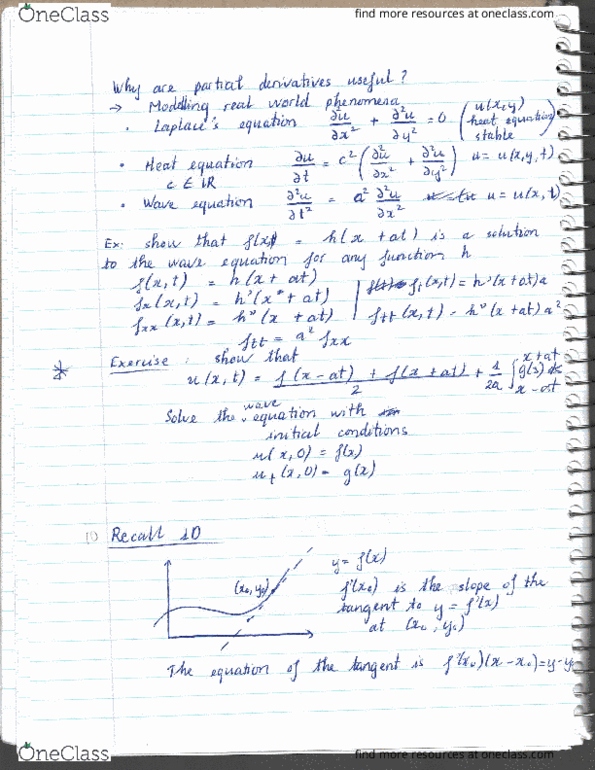 OneClass
find more resources at oneclass.com
Why are partial derivatives useful?
→ Modelling real world phenomena
• Laplace's equation ∂²u/∂x² + ∂²u/∂y² = 0 (u(x,y) heat equation stable)
• Heat equation ∂u/∂t = c² (∂²u/∂x² + ∂²u/∂y²) u = u(x,y,t).
c ∈ ℝ
• Wave equation ∂²u/∂t² = a² ∂²u/∂x² u = u(x,t)
Ex: show that f(x,t) = h(x + at) is a solution
to the wave equation for any function h
f(x,t) = h(x + at)
fₓ(x,t) = h'(x + at) | fₜ(x,t) = h'(x + at)a
fₓₓ(x,t) = h"(x + at) | fₜₜ(x,t) = h"(x + at)a²
fₜₜ = a² fₓₓ
Exercise: show that
u(x,t) = f(x - at) + f(x + at) / 2 + 1/2a ∫ x - at x + at g(s) ds
Solve the wave equation with
initial conditions
u(x,0) = f(x)
uₜ(x,0) = g(x)
Recall 1D
(x₀, y₀)
y = f(x)
f'(x₀) is the slope of the
tangent to y = f(x)
at (x₀, y₀)
The equation of the tangent is f'(x₀)(x - x₀) = y - y₀
OneClass
find more resources at oneclass.com